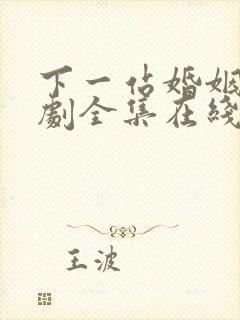 下一站婚姻
劇全集在綫
王波